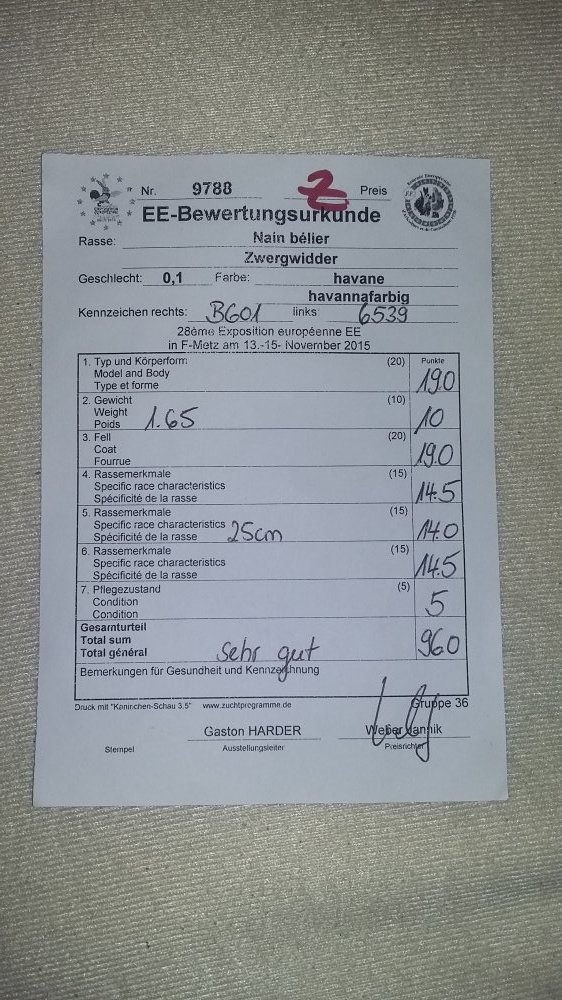 Nr. 9788 Z Preis
EE-Bewertungsurkunde
Rasse: Nain bélier
Zwergwidder
Geschlecht: 0,1 Farbe: havane
havannafarbig
Kennzeichen rechts: BG01 links: 6539
28ème Exposition européenne EE
in F-Metz am 13.-15- November 2015
1. Typ und Körperform (20) Punkte
Model and Body
Type et forme 19.0
2. Gewicht (10)
Weight
Poids 1.65 10
3. Fell (20)
Coat
Fourrue 19.0
4. Rassemerkmale (15)
Specific race characteristics
Spécificité de la rasse 14.5
5. Rassemerkmale (15)
Specific race characteristics
Spécificité de la rasse 25cm 14.0
6. Rassemerkmale (15)
Specific race characteristics
Spécificité de la rasse 14.5
7. Pflegezustand (5)
Condition
Condition 5
Gesamturteil
Total sum
Total général sehr gut 96.0
Bemerkungen für Gesundheit und Kennzeichnung
Druck mit "Kaninchen-Schau 3.5" www.zuchtprogramme.de Gruppe 36
Gaston HARDER Weber Jannik
Stempel Ausstellungsleiter Preisrichter